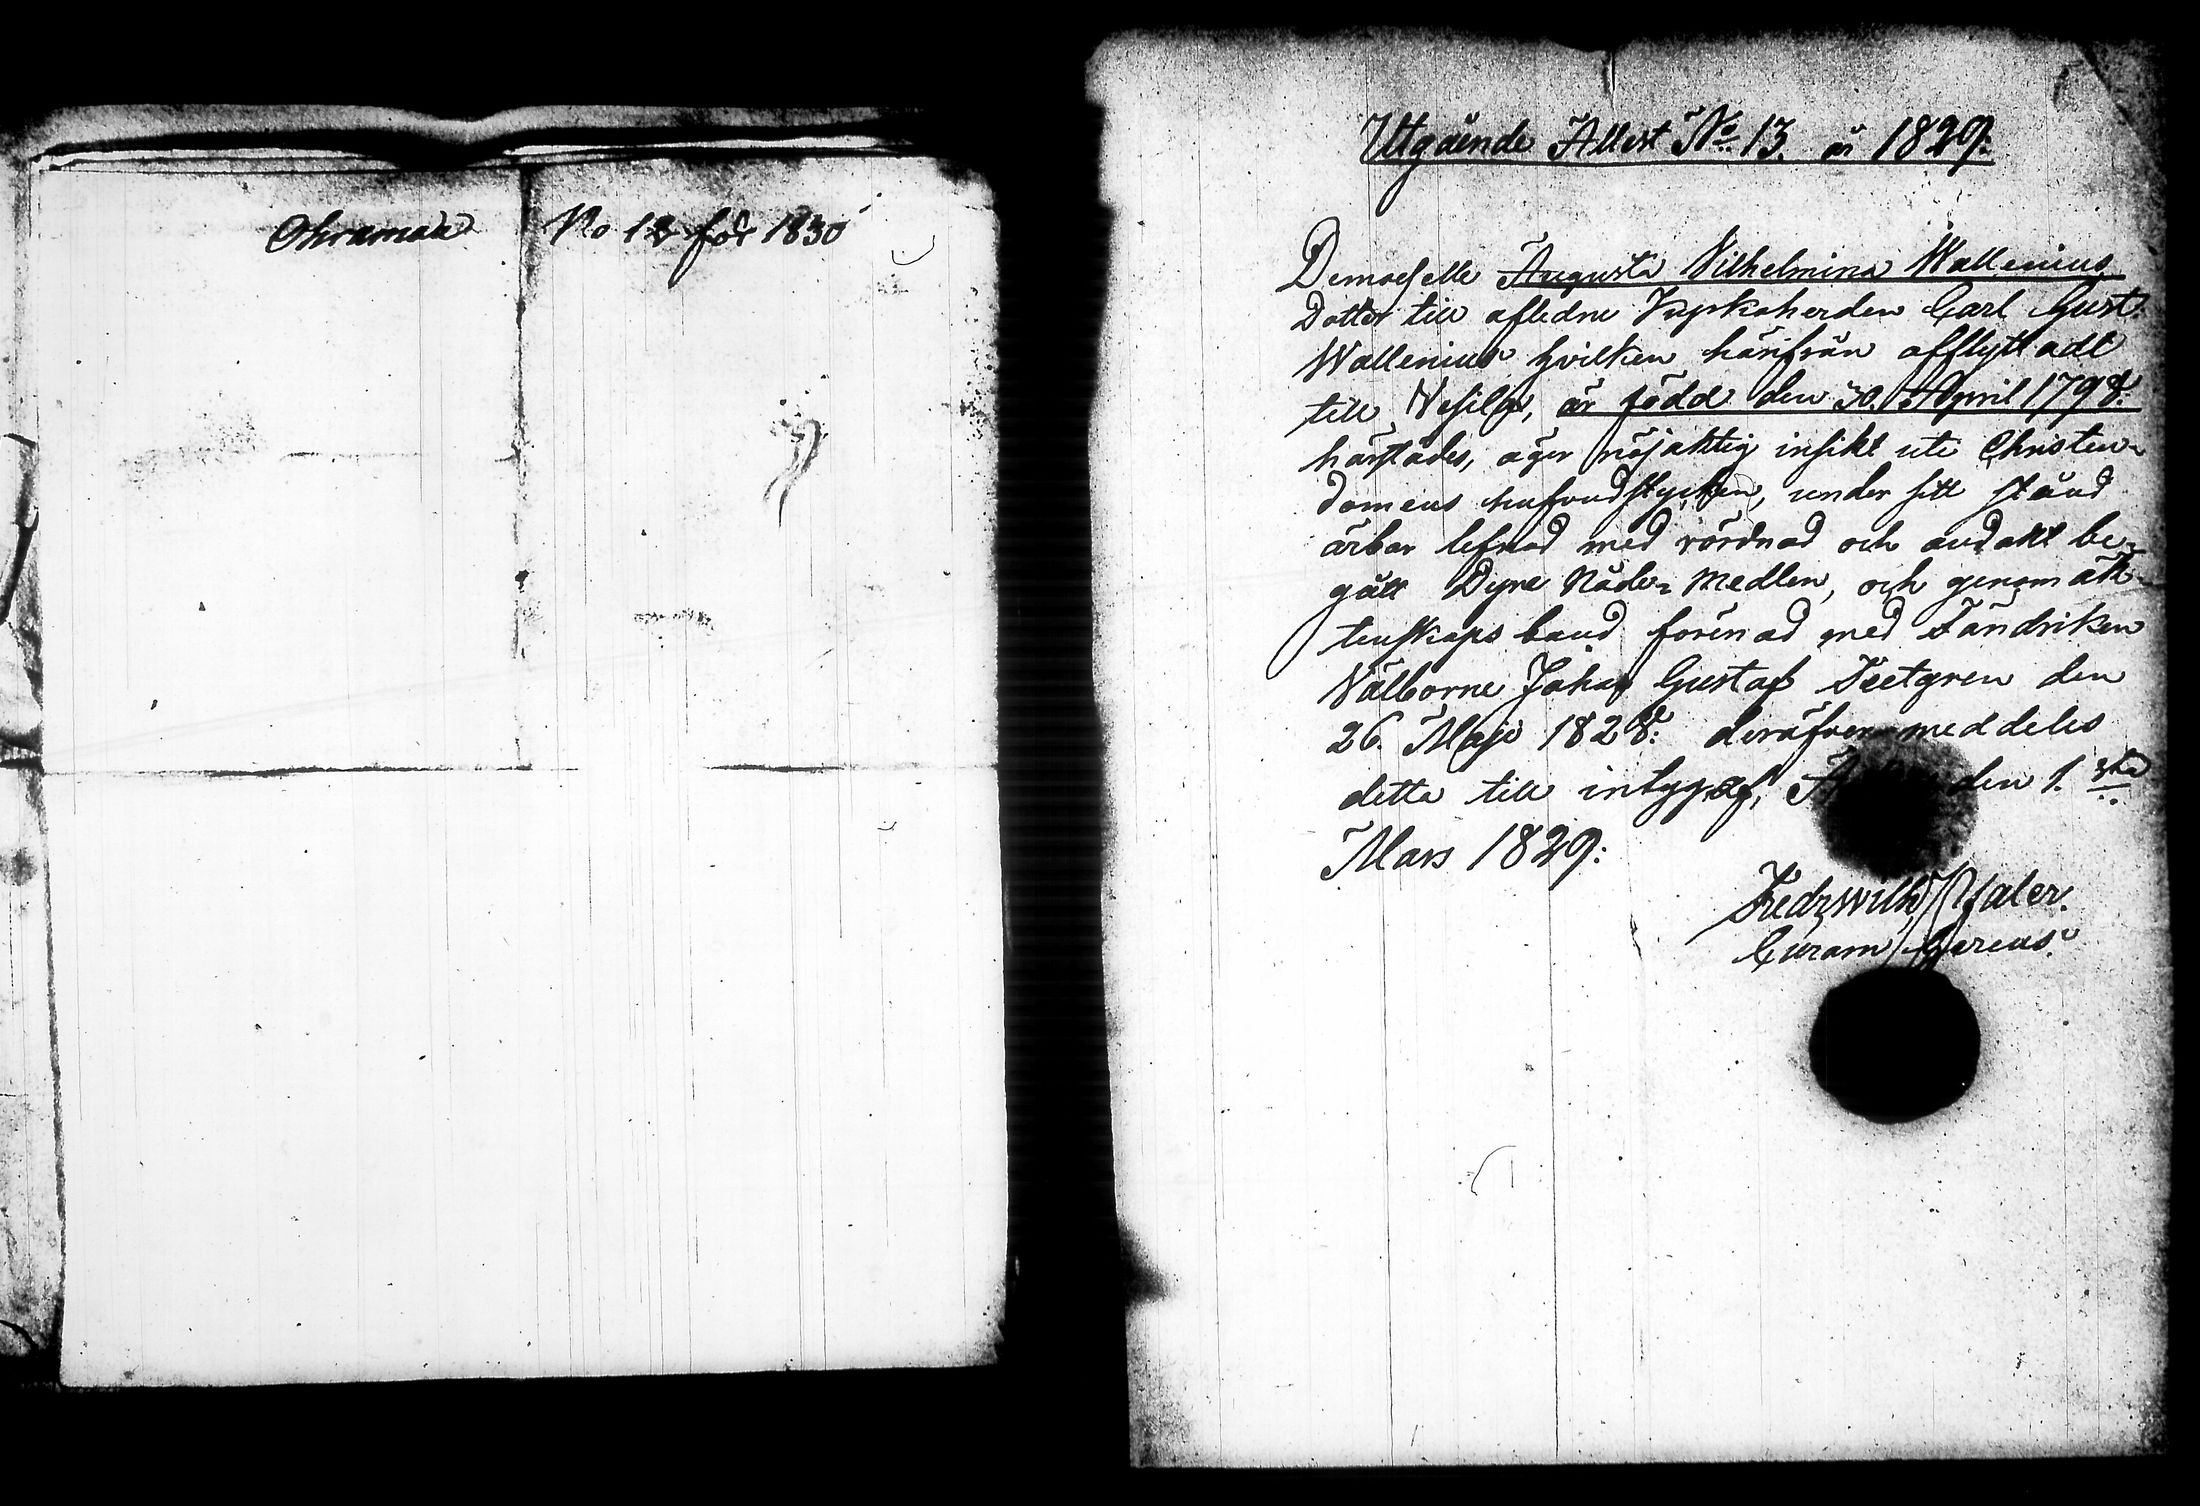 Ohramaa No 12 för 1830
Utgående Attest No 13. år 1829.
Demoiselle Augusta Vilhelmina Wallenius
Dotter till afledne Kyrkoherden Carl Gust.
Wallenius hvilken härifrån afflyttadt
till Vesilax, är född den 30. April 1798:
härstädes, äger nöjaktig insikt uti Christen-
domens hufvudstycken, under sitt stånd
ärbar lefnad med vördnad och andakt be-
gått Dyre Nåde-Medlen, och genom äk-
tenskaps band förenad med Fändriken
Välborne Johan Gustaf Teetgren den
26. Maji 1828: deröfver meddeles
detta till intyg af, den 1. sta
Mars 1829:
Fredr Wilh Pfaler.
Curam Gerens.